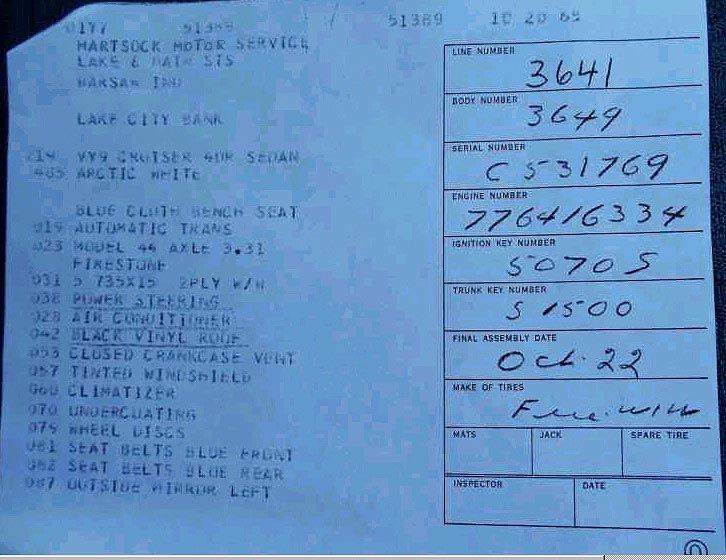 0177 51389 51389 10 20 65
HARTSOCK MOTOR SERVICE
LAKE & MAIN STS
WARSAW IND
LAKE CITY BANK
VY9 CRUISER 4DR SEDAN
ARCTIC WHITE
BLUE CLOTH BENCH SEAT
019 AUTOMATIC TRANS
023 MODEL 44 AXLE 3.31
FIRESTONE
031 5 735X15 2PLY W/W
038 POWER STEERING
028 AIR CONDITIONER
042 BLACK VINYL ROOF
053 CLOSED CRANKCASE VENT
057 TINTED WINDSHIELD
060 CLIMATIZER
070 UNDERCOATING
079 WHEEL DISCS
081 SEAT BELTS BLUE FRONT
082 SEAT BELTS BLUE REAR
087 OUTSIDE MIRROR LEFT
LINE NUMBER
3641
BODY NUMBER
3649
SERIAL NUMBER
C531769
ENGINE NUMBER
776416334
IGNITION KEY NUMBER
S0705
TRUNK KEY NUMBER
S1500
FINAL ASSEMBLY DATE
Oct. 22
MAKE OF TIRES
MATS JACK SPARE TIRE
INSPECTOR DATE